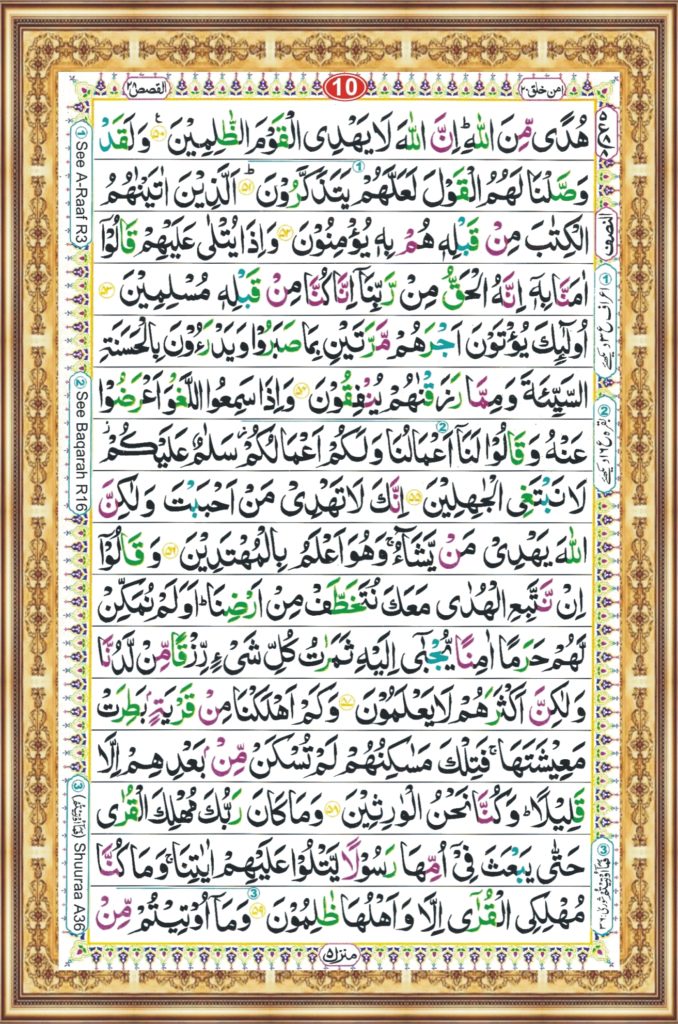 القصص ٢٨
10
امن خلق ٢٠
هُدًى مِّنَ اللّٰهِ ؕ اِنَّ اللّٰهَ لَا يَهْدِى الْقَوْمَ الظّٰلِمِيْنَ ﴿۵۰﴾ ع وَلَقَدْ
وَصَّلْنَا لَهُمُ الْقَوْلَ لَعَلَّهُمْ يَتَذَكَّرُوْنَ ؕ ﴿۵۱﴾ اَلَّذِيْنَ اٰتَيْنٰهُمُ
الْكِتٰبَ مِنْ قَبْلِهٖ هُمْ بِهٖ يُؤْمِنُوْنَ ﴿۵۲﴾ وَاِذَا يُتْلٰى عَلَيْهِمْ قَالُوْۤا
اٰمَنَّا بِهٖۤ اِنَّهُ الْحَقُّ مِنْ رَّبِّنَاۤ اِنَّا كُنَّا مِنْ قَبْلِهٖ مُسْلِمِيْنَ ﴿۵۳﴾
اُولٰٓئِكَ يُؤْتَوْنَ اَجْرَهُمْ مَّرَّتَيْنِ بِمَا صَبَرُوْا وَيَدْرَءُوْنَ بِالْحَسَنَةِ
السَّيِّئَةَ وَمِمَّا رَزَقْنٰهُمْ يُنْفِقُوْنَ ﴿۵۴﴾ وَاِذَا سَمِعُوا اللَّغْوَ اَعْرَضُوْا
عَنْهُ وَقَالُوْا لَنَاۤ اَعْمَالُنَا وَلَكُمْ اَعْمَالُكُمْ ؗ سَلٰمٌ عَلَيْكُمْ ؗ
لَا نَبْتَغِى الْجٰهِلِيْنَ ﴿۵۵﴾ اِنَّكَ لَا تَهْدِىْ مَنْ اَحْبَبْتَ وَلٰكِنَّ
اللّٰهَ يَهْدِىْ مَنْ يَّشَآءُ ۚ وَهُوَ اَعْلَمُ بِالْمُهْتَدِيْنَ ﴿۵۶﴾ وَقَالُوْۤا
اِنْ نَّتَّبِعِ الْهُدٰى مَعَكَ نُتَخَطَّفْ مِنْ اَرْضِنَا ؕ اَوَلَمْ نُمَكِّنْ
لَّهُمْ حَرَمًا اٰمِنًا يُّجْبٰۤى اِلَيْهِ ثَمَرٰتُ كُلِّ شَىْءٍ رِّزْقًا مِّنْ لَّدُنَّا
وَلٰكِنَّ اَكْثَرَهُمْ لَا يَعْلَمُوْنَ ﴿۵۷﴾ وَكَمْ اَهْلَكْنَا مِنْ قَرْيَةٍۭ بَطِرَتْ
مَعِيْشَتَهَا ۚ فَتِلْكَ مَسٰكِنُهُمْ لَمْ تُسْكَنْ مِّنْۢ بَعْدِهِمْ اِلَّا
قَلِيْلًا ؕ وَكُنَّا نَحْنُ الْوٰرِثِيْنَ ﴿۵۸﴾ وَمَا كَانَ رَبُّكَ مُهْلِكَ الْقُرٰى
حَتّٰى يَبْعَثَ فِىْۤ اُمِّهَا رَسُوْلًا يَّتْلُوْا عَلَيْهِمْ اٰيٰتِنَا ۚ وَمَا كُنَّا
مُهْلِكِى الْقُرٰٓى اِلَّا وَاَهْلُهَا ظٰلِمُوْنَ ﴿۵۹﴾ وَمَاۤ اُوْتِيْتُمْ مِّنْ
منزل ۵
النصف
① See A-Raaf R3
② See Baqarah R16
③ (فَمَا أُوتِيتُمْ) Shuuraa A36